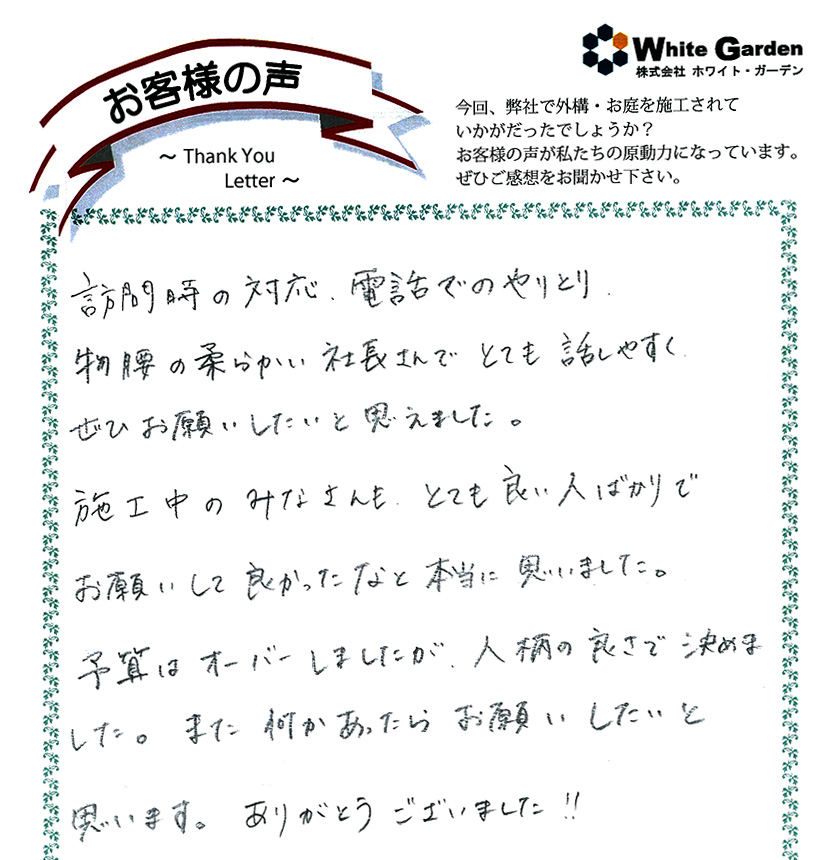 お客様の声
～ Thank You
Letter ～
White Garden
株式会社 ホワイト・ガーデン
今回、弊社で外構・お庭を施工されて
いかがだったでしょうか？
お客様の声が私たちの原動力になっています。
ぜひご感想をお聞かせ下さい。
訪問時の対応、電話でのやりとり、
物腰の柔らかい社長さんでとても話しやすく、
ぜひお願いしたいと思えました。
施工中のみなさんも、とても良い人ばかりで
お願いして良かったなと本当に思いました。
予算はオーバーしましたが、人柄の良さで決めま
した。また何かあったらお願いしたいと
思います。ありがとうございました!!